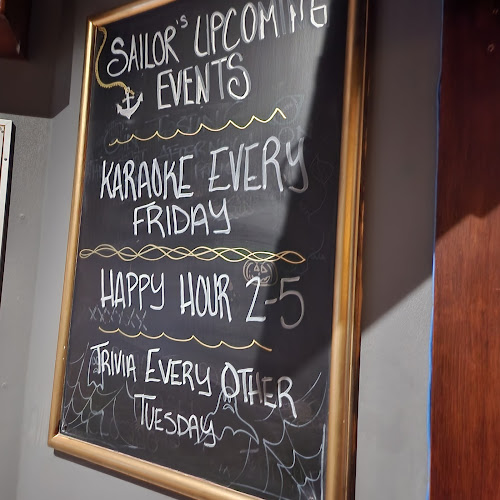 SAILOR'S UPCOMING
EVENTS
KARAOKE EVERY
FRIDAY
HAPPY HOUR 2-5
TRIVIA EVERY OTHER
TUESDAY